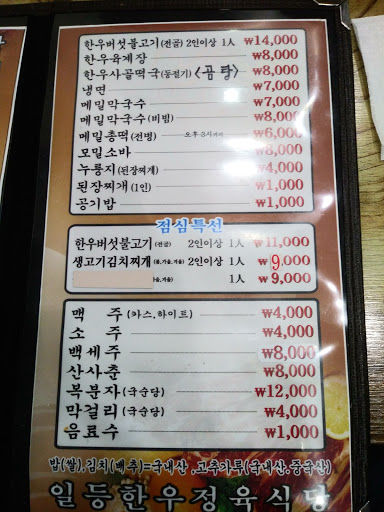 한우버섯불고기(전골) 2인이상 1人 ₩14,000
한우육계장 ₩8,000
한우사골떡국(동절기) <곰탕> ₩8,000
냉면 ₩7,000
메밀막국수 ₩7,000
메밀막국수(비빔) ₩8,000
메밀총떡(전병) 오후3시까지 ₩6,000
모밀소바 ₩8,000
누룽지(된장찌개) ₩4,000
된장찌개(1인) ₩1,000
공기밥 ₩1,000
점심특선
한우버섯불고기(전골) 2인이상 1人 ₩11,000
생고기김치찌개(봄,가을,겨울) 2인이상 1人 ₩9,000
1人 ₩9,000
맥주(카스,하이트) ₩4,000
소주 ₩4,000
백세주 ₩8,000
산사춘 ₩8,000
복분자(국순당) ₩12,000
막걸리(국순당) ₩4,000
음료수 ₩1,000
밥(쌀),김치(배추)=국내산 ,고추가루(국내산.중국산)
일등한우정육식당